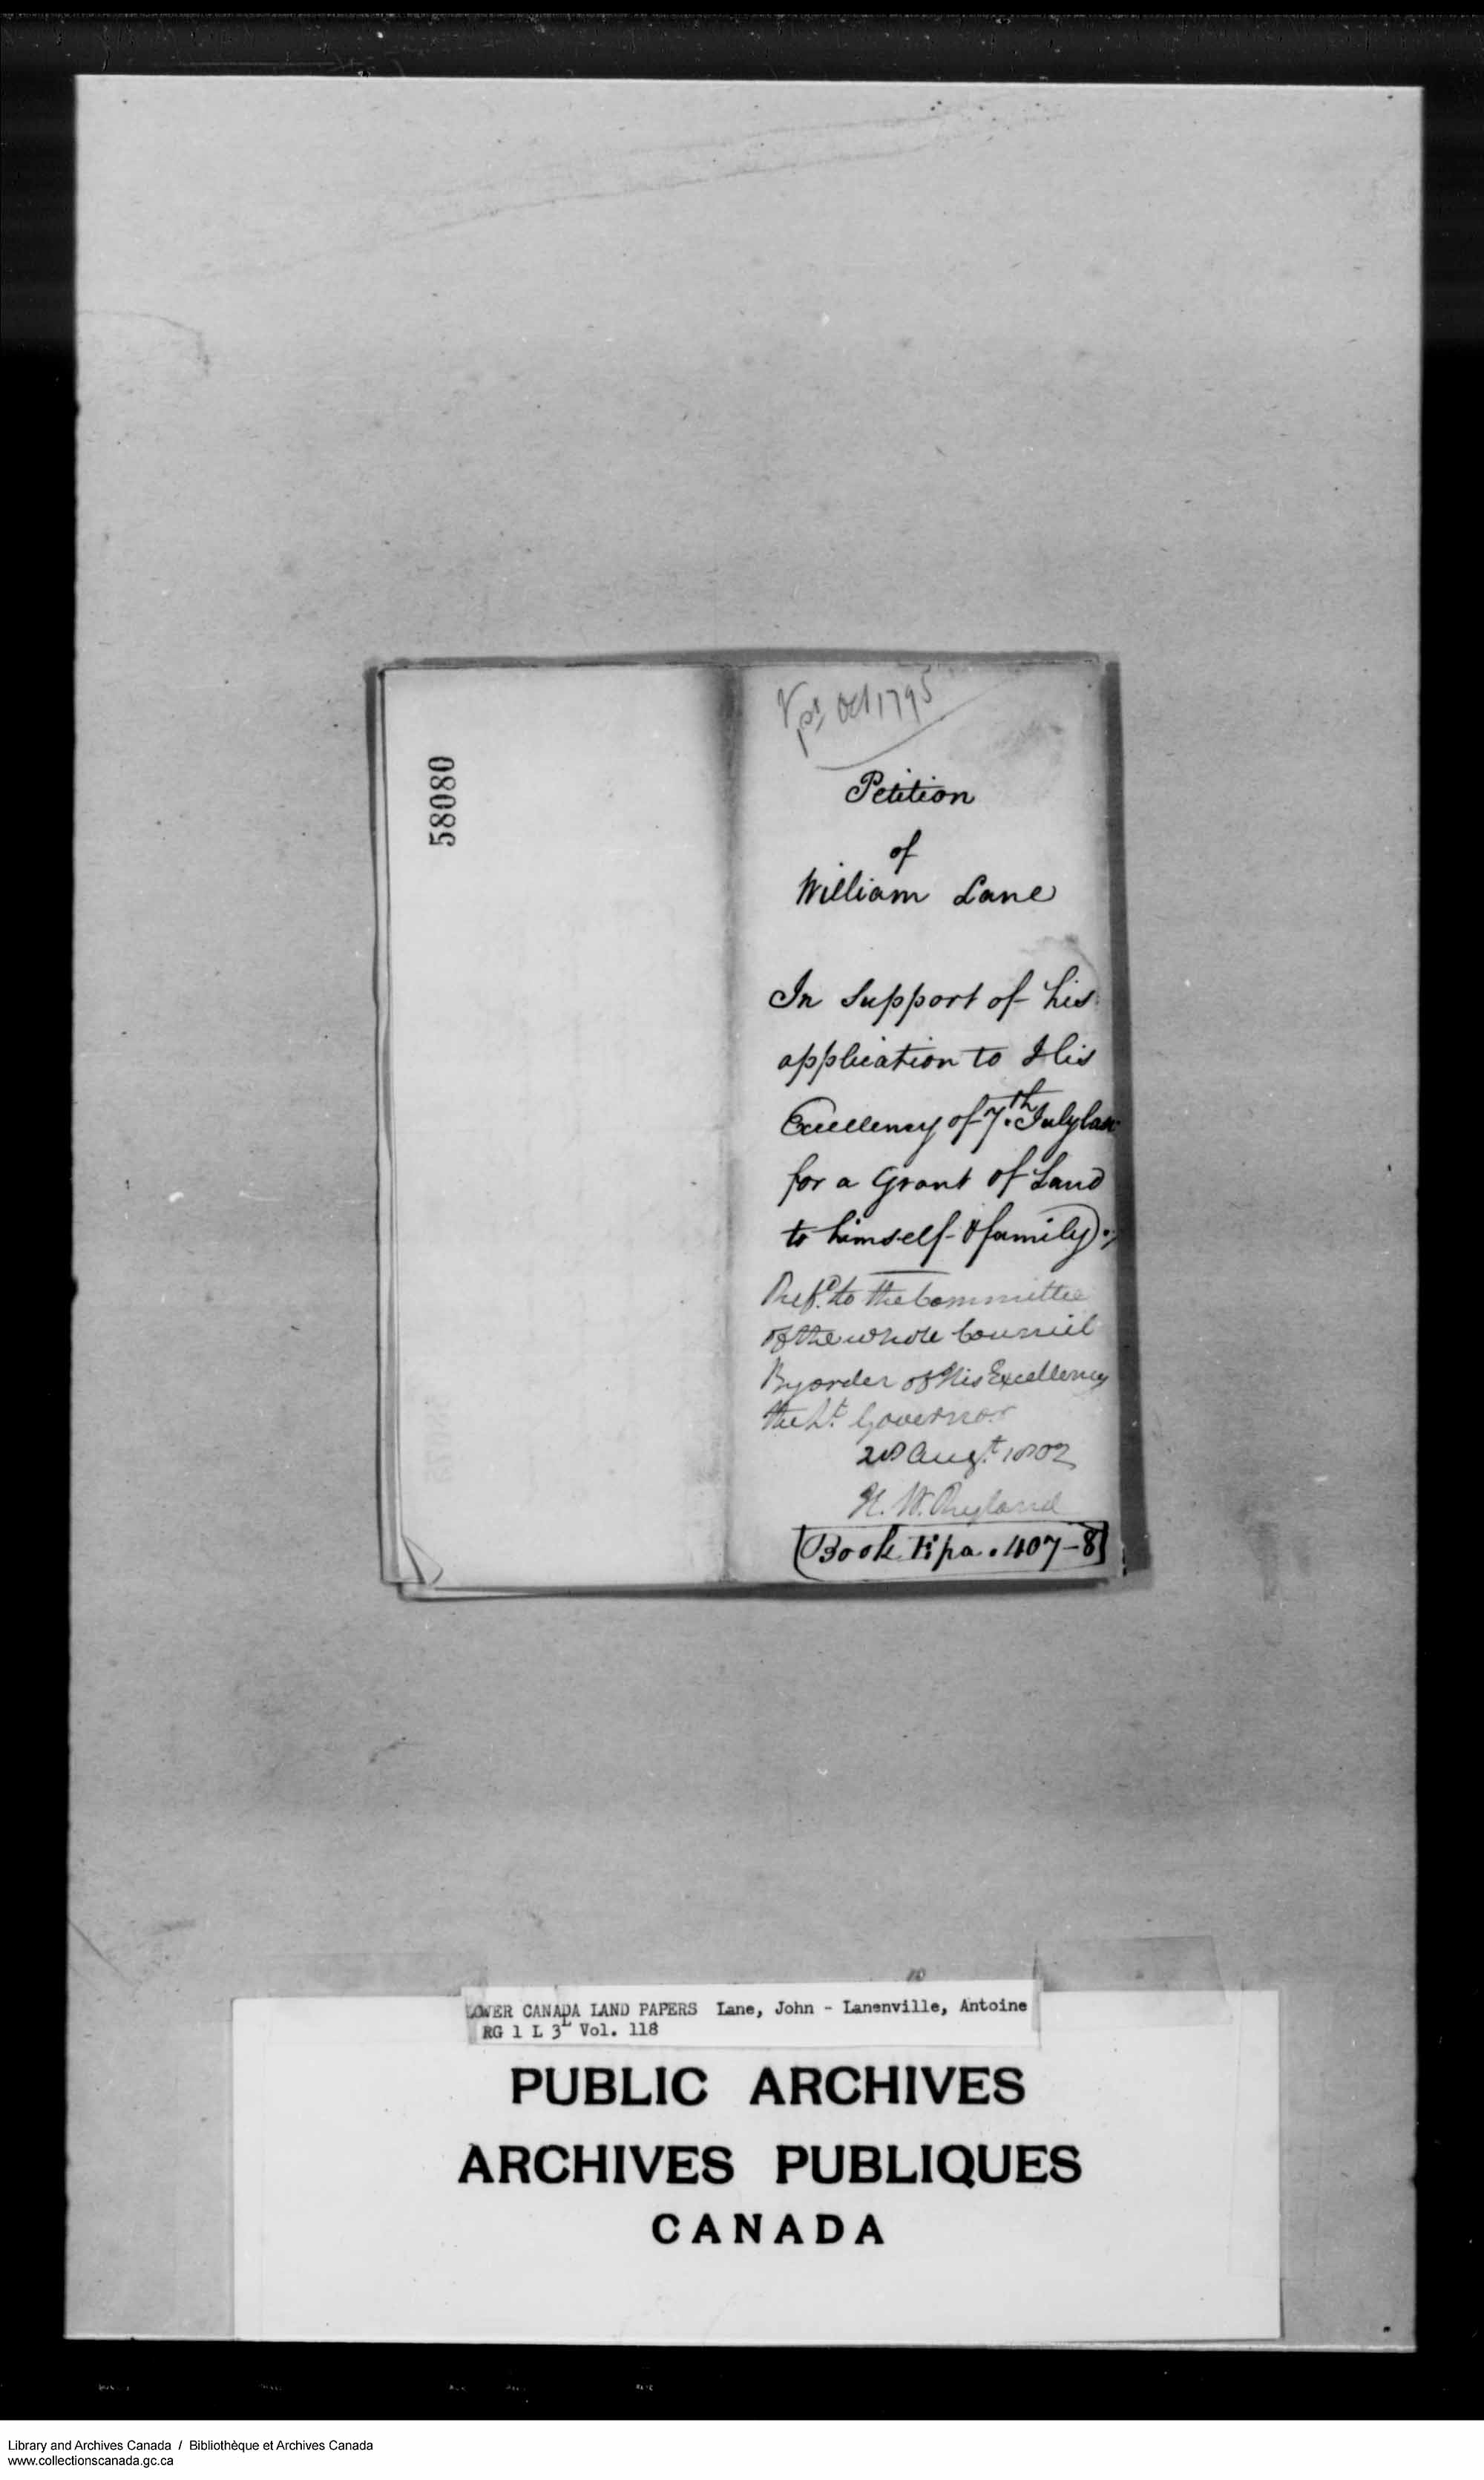 58080
Oct 1795
Petition
of
William Lane
In Support of his
application to His
Excellency of 7.th July last
for a Grant of Land
to himself & family
Ref.d to the Committee
of the whole Council
By order of His Excellency
the Lt. Governor
28 Augt. 1802
H. W. Ryland
Book pa. 407-8
LOWER CANADA LAND PAPERS Lane, John - Lanenville, Antoine
RG 1 L 3L Vol. 118
PUBLIC ARCHIVES
ARCHIVES PUBLIQUES
CANADA
Library and Archives Canada / Bibliothèque et Archives Canada
www.collectionscanada.gc.ca